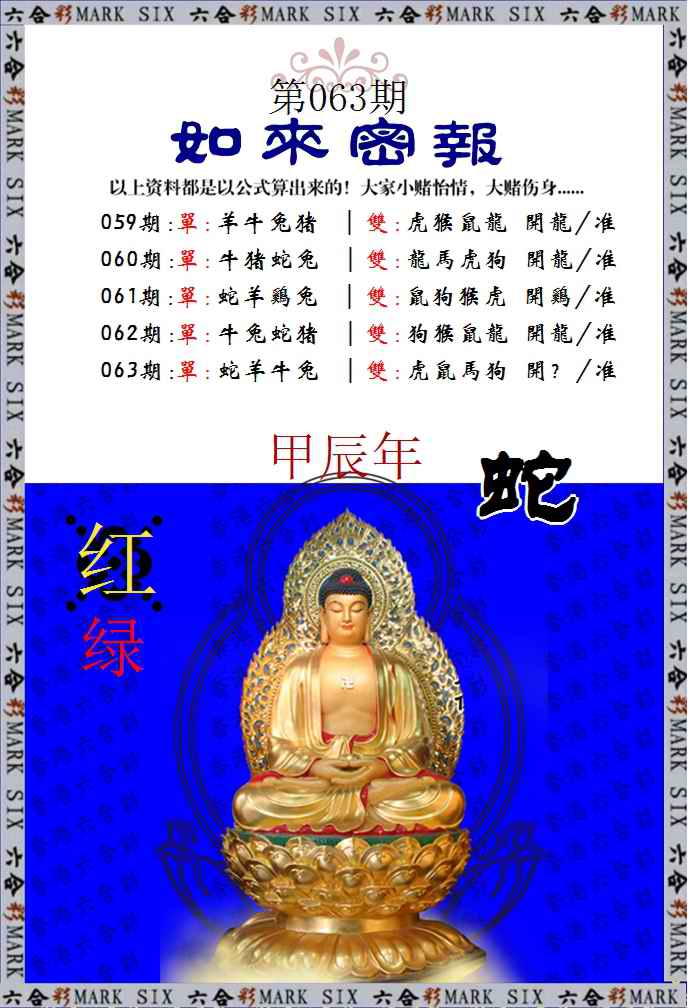 六合彩MARK SIX 六合彩MARK SIX 六合彩MARK SIX 六合彩MARK SIX
第063期
如來密報
以上资料都是以公式算出来的！大家小赌怡情，大赌伤身......
059期:單:羊牛兔猪 | 雙:虎猴鼠龍 開龍/准
060期:單:牛猪蛇兔 | 雙:龍馬虎狗 開龍/准
061期:單:蛇羊鷄兔 | 雙:鼠狗猴虎 開鷄/准
062期:單:牛兔蛇猪 | 雙:狗猴鼠龍 開龍/准
063期:單:蛇羊牛兔 | 雙:虎鼠馬狗 開?/准
甲辰年
蛇
红
绿
六合彩MARK SIX 六合彩MARK SIX 六合彩MARK SIX 六合彩MARK SIX